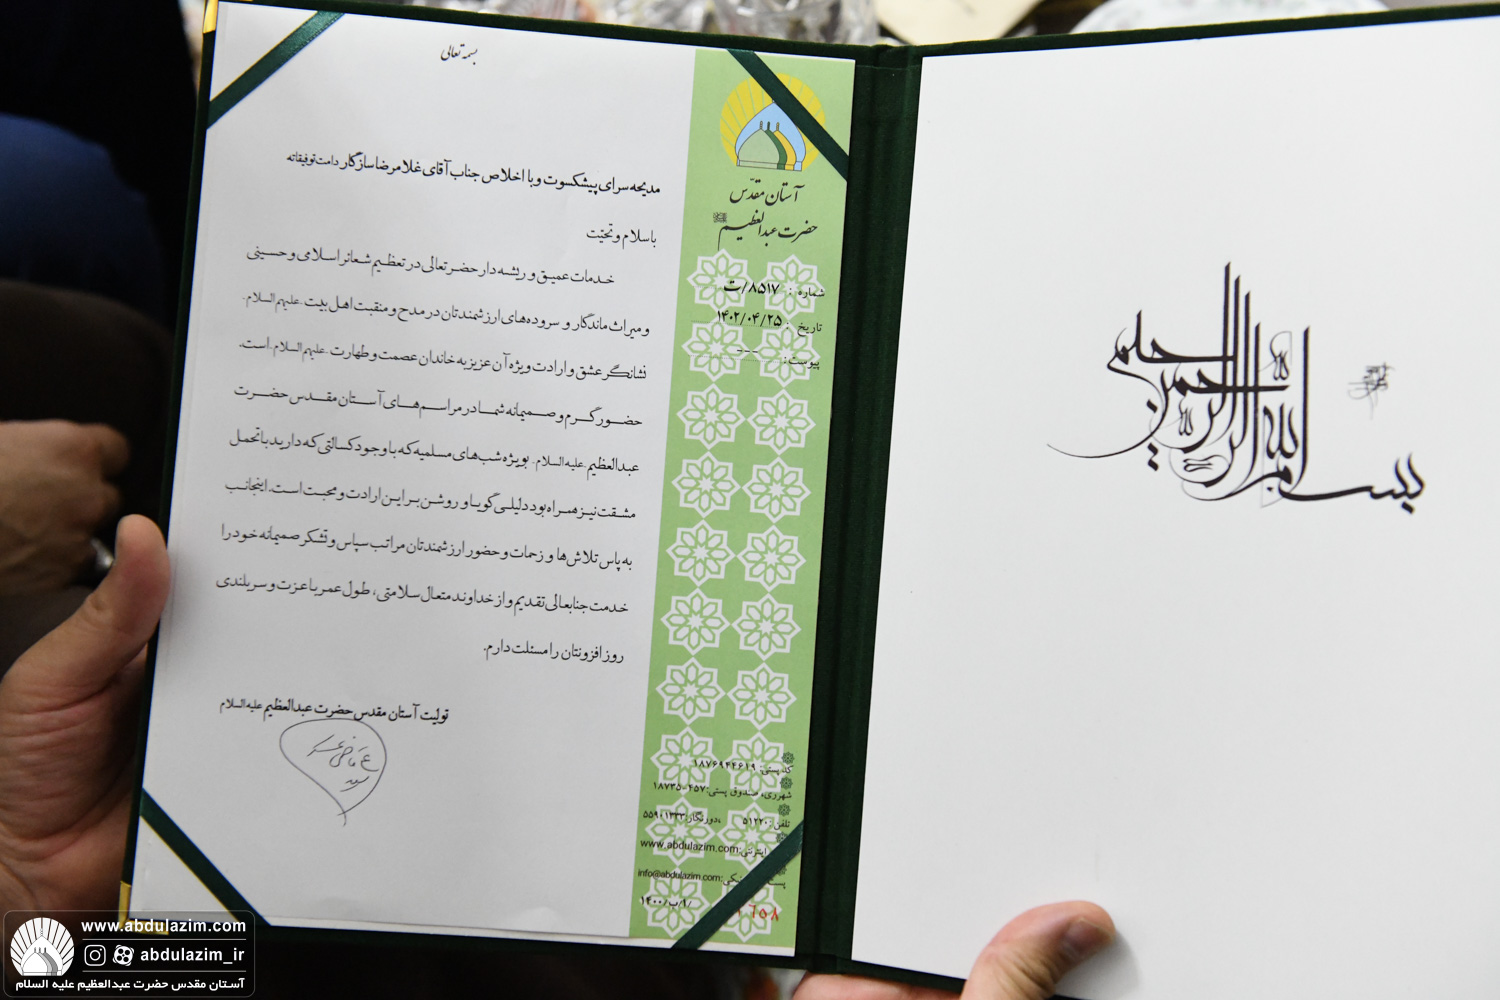 بسمه تعالی
مدیحه سرای پیشکسوت و با اخلاص جناب آقای غلامرضا سازگار دامت توفیقاته
با سلام و تحیّت
خدمات عمیق و ریشه دار حضرتعالی در تعظیم شعائر اسلامی و حسینی
و میراث ماندگار و سروده‌های ارزشمندتان در مدح و منقبت اهل بیت علیهم السلام
نشانگر عشق و ارادت ویژه آن عزیز به خاندان عصمت و طهارت علیهم السلام است.
حضور گرم و صمیمانه شما در مراسم‌های آستان مقدس حضرت
عبدالعظیم علیه السلام بویژه شب‌های مسلمیه که با وجود کسالتی که دارید با تحمل
مشقت نیز همراه بود دلیلی گویا و روشن بر این ارادت و محبت است. اینجانب
به پاس تلاش‌ها و زحمات و حضور ارزشمندتان مراتب سپاس و تشکر صمیمانه خود را
خدمت جنابعالی تقدیم و از خداوند متعال سلامتی، طول عمر با عزت و سربلندی
روز افزونتان را مسئلت دارم.
تولیت آستان مقدس حضرت عبدالعظیم علیه السلام
آستان مقدّس
حضرت عبدالعظیم
شماره : ۸۵۱۷/ت
تاریخ : ۱۴۰۲/۰۴/۲۵
پیوست: ---
کد پستی: ۱۸۷۶۹۴۴۶۱۹
شهرری، صندوق پستی: ۴۵۷-۱۸۷۳۵
تلفن: ۵۱۲۲۰ ،دورنگار: ۵۵۹۰۱۳۳۳
اینترنتی: www.abdulazim.com
info@abdulazim.com
۱۴۰۰/ب/۱/
۶۵۸
بسم الله الرحمن الرحیم
www.abdulazim.com
abdulazim_ir
آستان مقدس حضرت عبدالعظیم علیه السلام